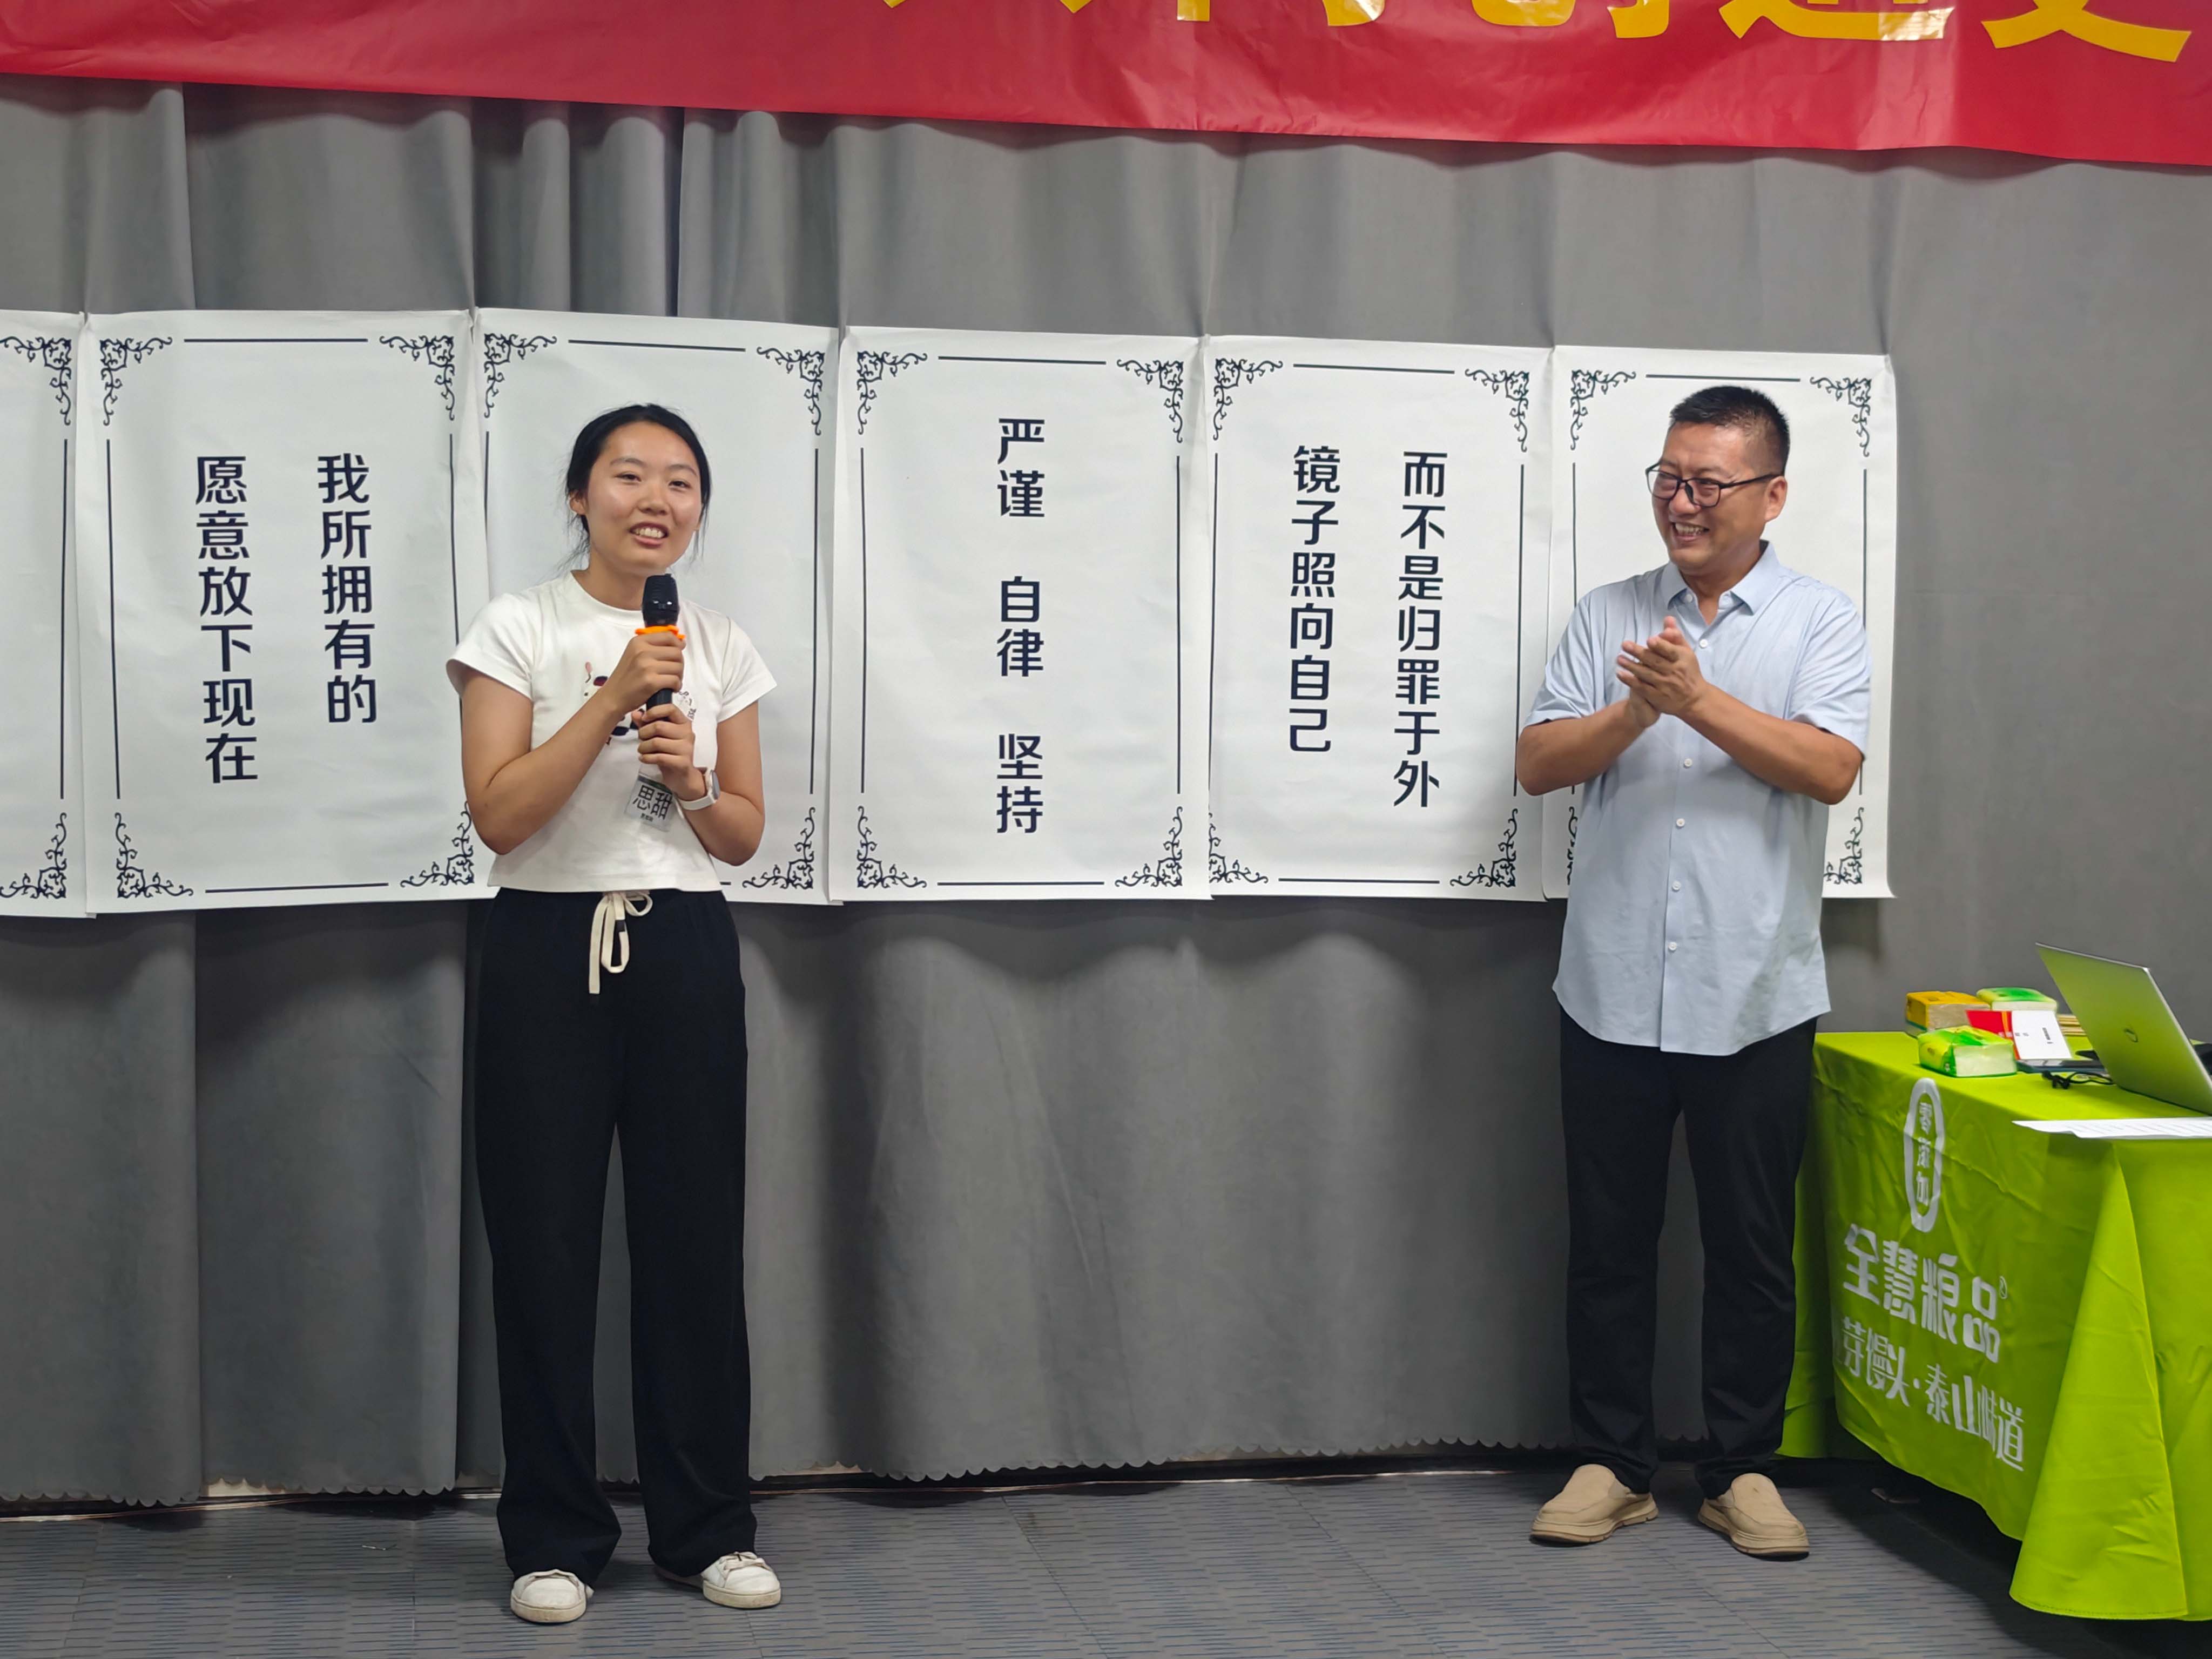 愿意放下现在
我所拥有的
严谨 自律 坚持
镜子照向自己
而不是归罪于外
思甜
零添加
全慧粮品®
芽馒头·泰山味道